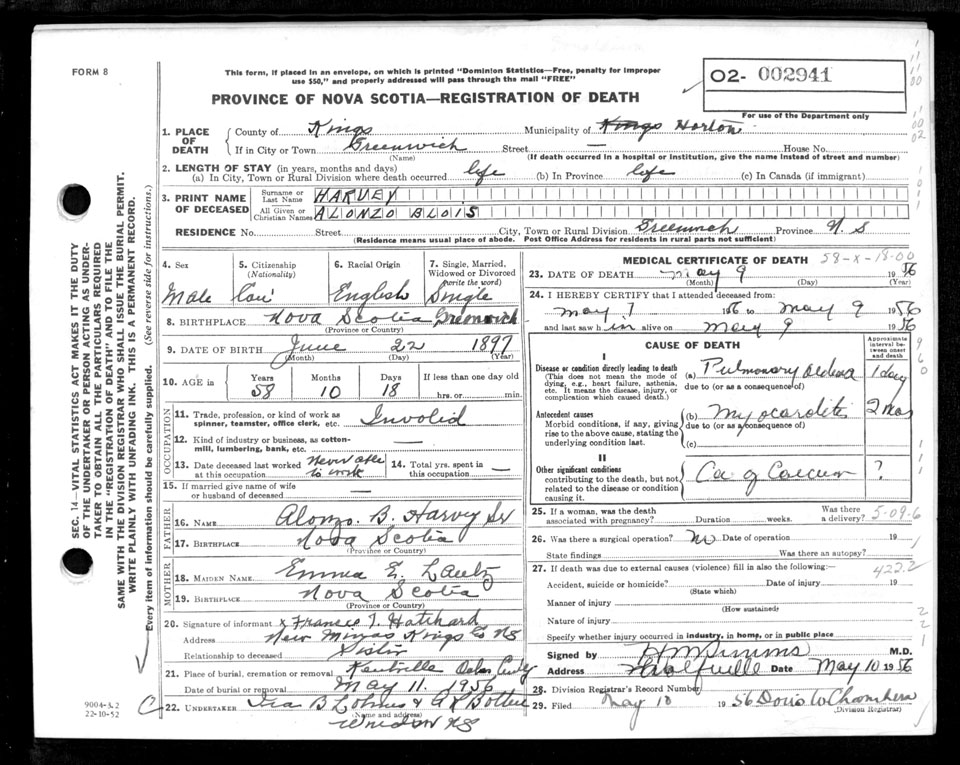 FORM 8
This form, if placed in an envelope, on which is printed "Dominion Statistics—Free, penalty for improper
use $50," and properly addressed will pass through the mail "FREE"
O2- 002941
For use of the Department only
PROVINCE OF NOVA SCOTIA—REGISTRATION OF DEATH
1. PLACE OF DEATH County of Kings Municipality of Kings Horton
If in City or Town Greenwich Street — House No.
(Name) (If death occurred in a hospital or institution, give the name instead of street and number)
2. LENGTH OF STAY (in years, months and days)
(a) In City, Town or Rural Division where death occurred life (b) In Province life (c) In Canada (if immigrant)
3. PRINT NAME OF DECEASED Surname or Last Name HARVEY
All Given or Christian Names ALONZO BLOIS
RESIDENCE No. Street City, Town or Rural Division Greenwich Province N. S
(Residence means usual place of abode. Post Office Address for residents in rural parts not sufficient)
4. Sex Male
5. Citizenship (Nationality)
6. Racial Origin English
7. Single, Married, Widowed or Divorced (write the word) Single
8. BIRTHPLACE Nova Scotia Greenwich
(Province or Country)
9. DATE OF BIRTH June 22 1897
(Month) (Day) (Year)
10. AGE in Years 58 Months 10 Days 18 If less than one day old hrs. or min.
OCCUPATION
11. Trade, profession, or kind of work as spinner, teamster, office clerk, etc. Invalid
12. Kind of industry or business, as cotton-mill, lumbering, bank, etc. —
13. Date deceased last worked at this occupation never able to work
14. Total yrs. spent in this occupation —
15. If married give name of wife or husband of deceased —
FATHER
16. NAME Alonzo B. Harvey Sr
17. BIRTHPLACE Nova Scotia
(Province or Country)
MOTHER
18. MAIDEN NAME Emma E. Lantz
19. BIRTHPLACE Nova Scotia
(Province or Country)
20. Signature of informant x Francis T. Hatchard
Address New Minas Kings Co NS
Relationship to deceased Sister
21. Place of burial, cremation or removal Kentville
Date of burial or removal May 11. 1956
22. UNDERTAKER
(Name and address)
Windsor NS
MEDICAL CERTIFICATE OF DEATH 58-X-18-00
23. DATE OF DEATH May 9 1956
(Month) (Day) (Year)
24. I HEREBY CERTIFY that I attended deceased from:
May 7 1956 to May 9 1956
and last saw him alive on May 9 1956
CAUSE OF DEATH
Approximate interval between onset and death
I
Disease or condition directly leading to death (a) Pulmonary oedema 1 day
(This does not mean the mode of dying, e.g., heart failure, asthenia, etc. It means the disease, injury, or complication which caused death.)
due to (or as a consequence of)
Antecedent causes (b) Myocarditis 2 mos
Morbid conditions, if any, giving rise to the above cause, stating the underlying condition last.
due to (or as a consequence of)
(c)
II
Other significant conditions Ca of Caecum ?
contributing to the death, but not related to the disease or condition causing it.
25. If a woman, was the death associated with pregnancy? Duration weeks. Was there a delivery? 5-09-6
26. Was there a surgical operation? No Date of operation 19
State findings Was there an autopsy?
27. If death was due to external causes (violence) fill in also the following:— 422.2
Accident, suicide or homicide? Date of injury 19
(State which)
Manner of injury
(How sustained)
Nature of injury
Specify whether injury occurred in industry, in home, or in public place
Signed by M.D.
Address Wolfville Date May 10 1956
28. Division Registrar's Record Number
29. Filed May 10 1956 Doris W Chambers
(Division Registrar)
SEC. 14—VITAL STATISTICS ACT MAKES IT THE DUTY
OF THE UNDERTAKER OR PERSON ACTING AS UNDER-
TAKER TO OBTAIN ALL THE PARTICULARS REQUIRED
IN THE "REGISTRATION OF DEATH" AND TO FILE THE
SAME WITH THE DIVISION REGISTRAR WHO SHALL ISSUE THE BURIAL PERMIT.
WRITE PLAINLY WITH UNFADING INK. THIS IS A PERMANENT RECORD.
Every item of information should be carefully supplied. (See reverse side for instructions.)
9004-3.2
22-10-52